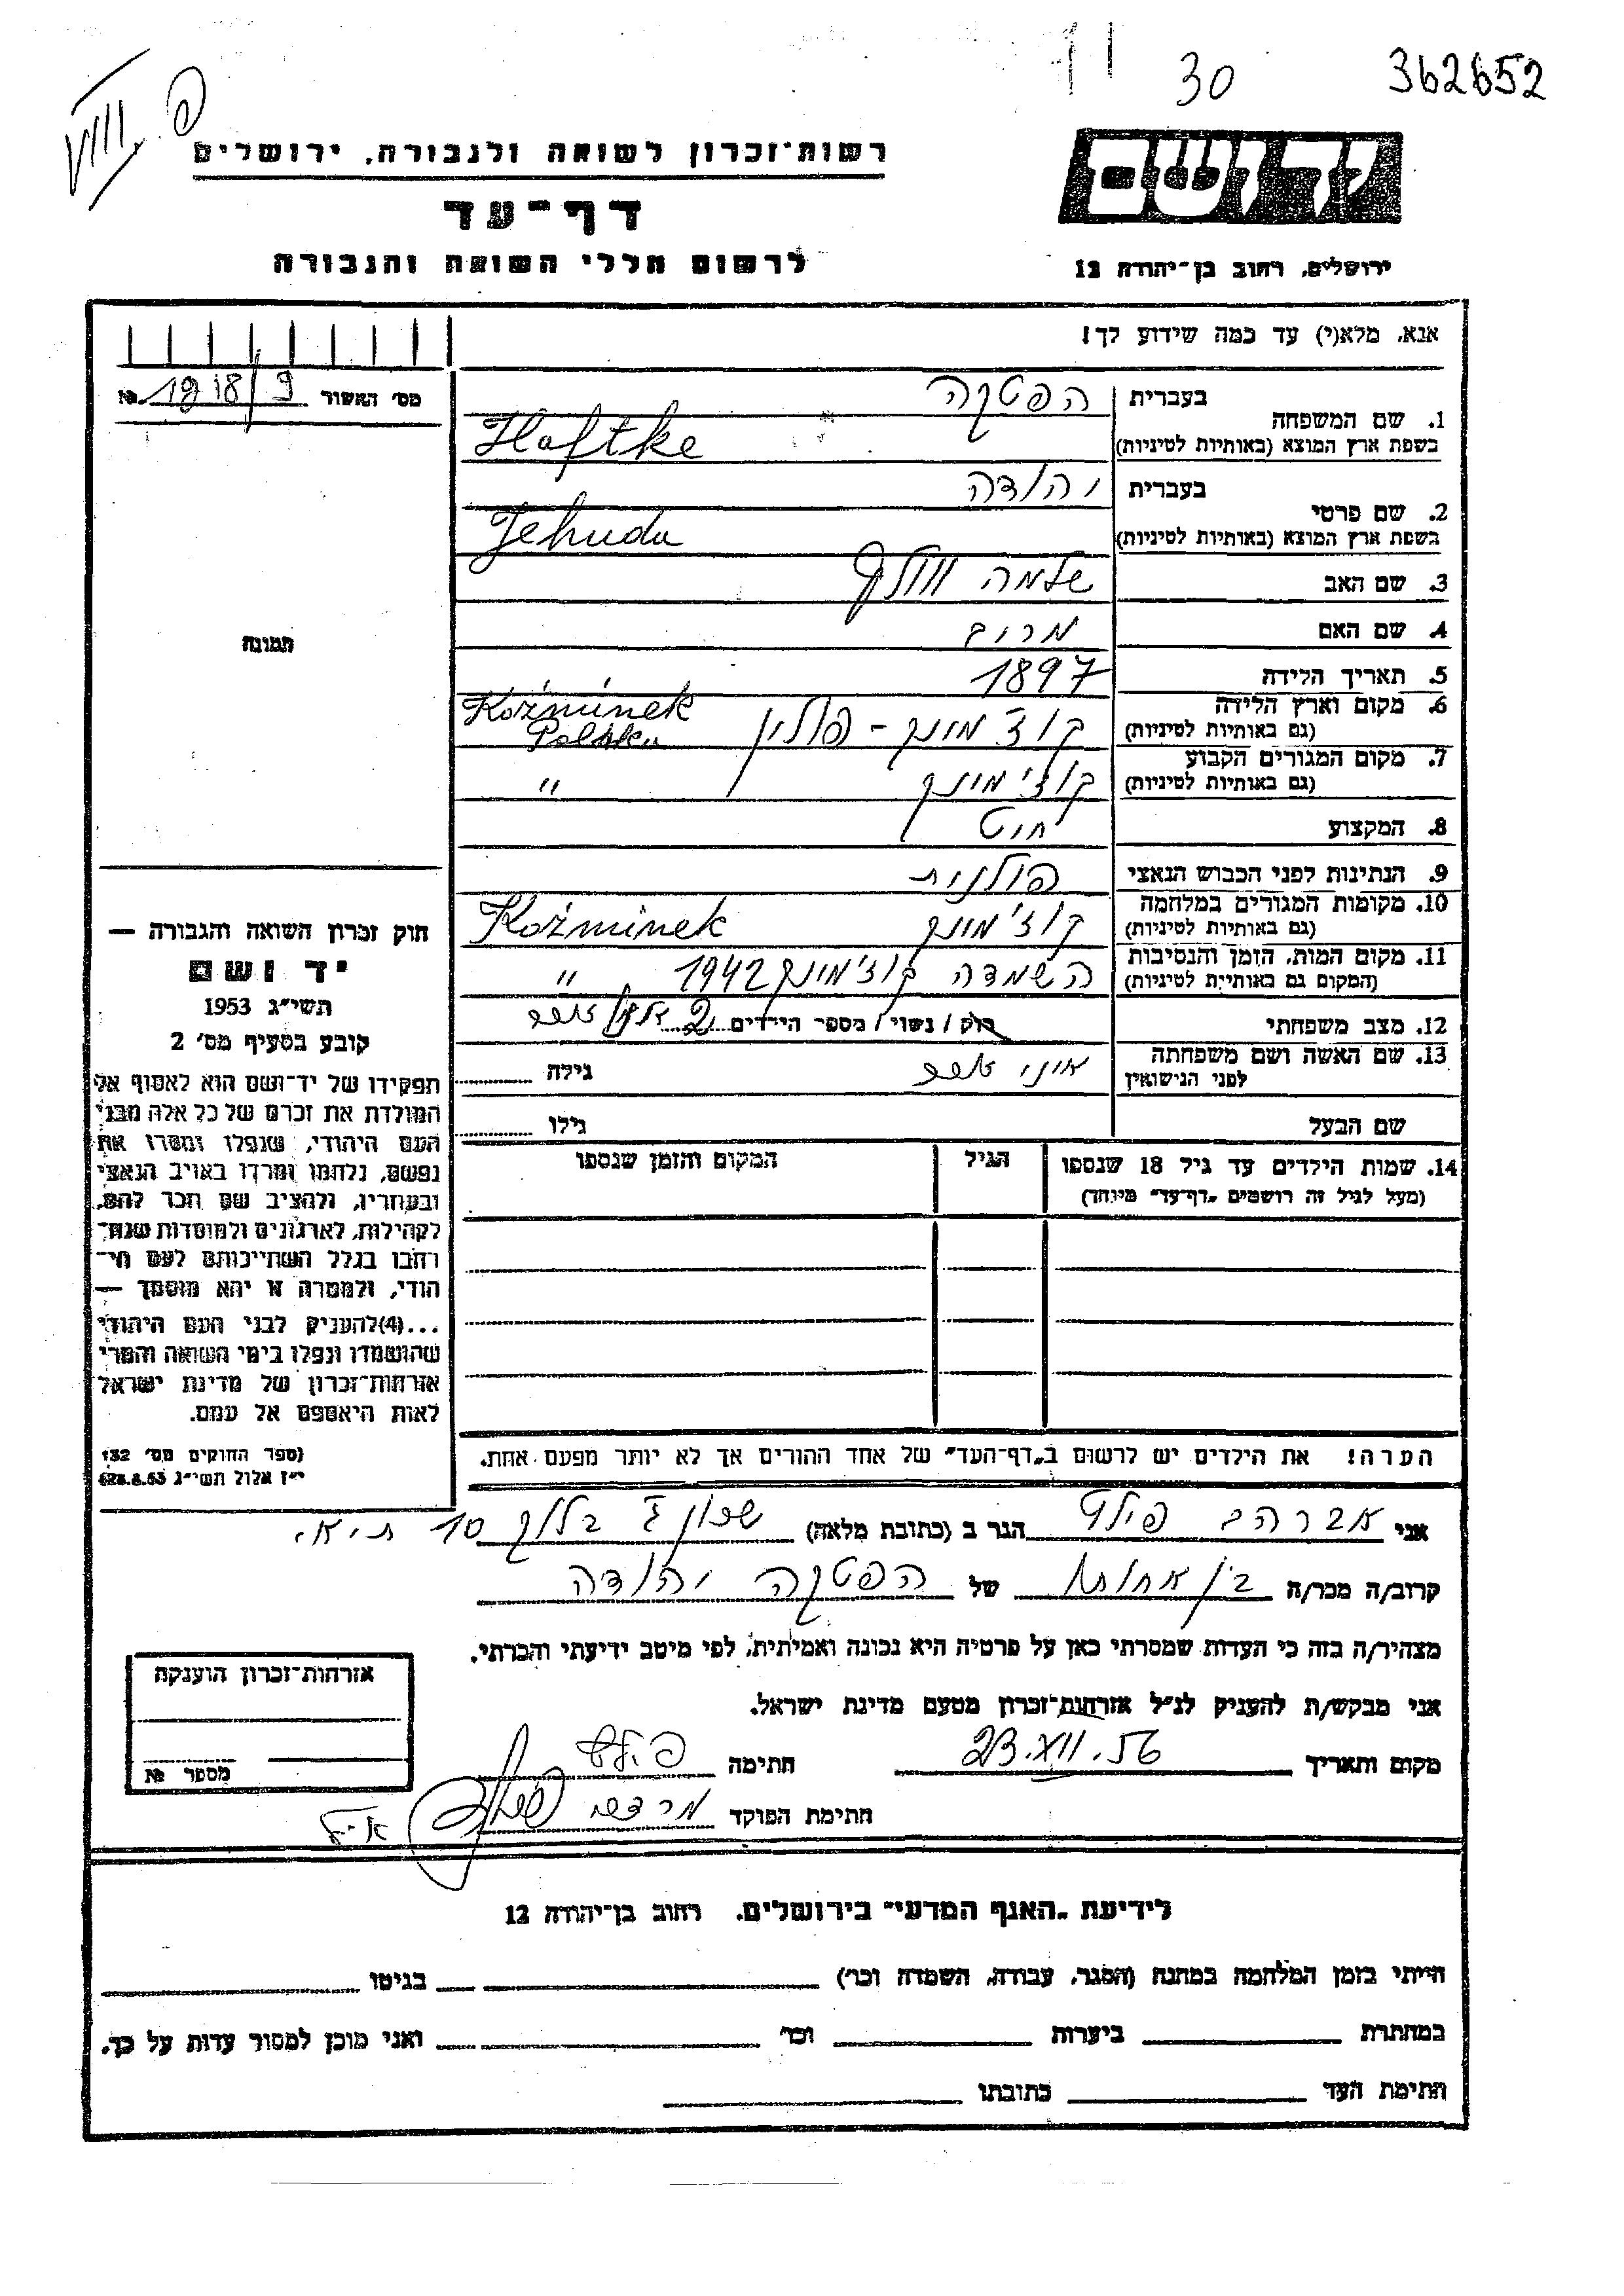 362652
30
פ VIII
יד ושם
רשות־זכרון לשואה ולגבורה, ירושלים
דף־עד
לרשום חללי השואה והגבורה
ירושלים, רחוב בן־יהודה 12
אנא, מלא(י) עד כמה שידוע לך!
מס׳ האשור 1918/9 №
1. שם המשפחה
בעברית הפטקה
בשפת ארץ המוצא (באותיות לטיניות) Haftke
2. שם פרטי
בעברית יהודה
בשפת ארץ המוצא (באותיות לטיניות) Jehuda
3. שם האב שלמה וולף
4. שם האם מרים
5. תאריך הלידה 1897
6. מקום וארץ הלידה (גם באותיות לטיניות) קוז׳מינק - פולין Koźminek Polska
7. מקום המגורים הקבוע (גם באותיות לטיניות) קוז׳מינק "
8. המקצוע חיט
9. הנתינות לפני הכבוש הנאצי פולנית
10. מקומות המגורים במלחמה (גם באותיות לטיניות) קוז׳מינק Koźminek
11. מקום המות, הזמן והנסיבות (המקום גם באותיות לטיניות) השמדה קוז׳מינק 1942 "
12. מצב משפחתי רווק / נשוי / מספר הילדים 2
13. שם האשה ושם משפחתה לפני הנישואין אינו גילה
שם הבעל גילו
14. שמות הילדים עד גיל 18 שנספו
(מעל לגיל זה רושמים „דף־עד״ מיוחד)
הגיל
המקום והזמן שנספו
הערה! את הילדים יש לרשום ב„דף־העד״ של אחד ההורים אך לא יותר מפעם אחת.
תמונה
חוק זכרון השואה והגבורה —
יד ושם
תשי״ג 1953
קובע בסעיף מס׳ 2
תפקידו של יד־ושם הוא לאסוף אל
המולדת את זכרם של כל אלה מבני
העם היהודי, שנפלו ומסרו את
נפשם, נלחמו ומרדו באויב הנאצי
ובעוזריו, ולהציב שם וזכר להם,
לקהילות, לארגונים ולמוסדות שנח־
רבו בגלל השתייכותם לעם הי־
הודי, ולמטרה זו יהא מוסמך —
...(4)להעניק לבני העם היהודי
שהושמדו ונפלו בימי השואה והמרי
אזרחות־זכרון של מדינת ישראל
לאות היאספם אל עמם.
(ספר החוקים מס׳ 132
י״ז אלול תשי״ג 28.8.53)
אני אברהם פולד הגר ב (כתובת מלאה) שכון ג׳ בלוק 10
קרוב/ה מכר/ה בן אחותו של הפטקה יהודה
מצהיר/ה בזה כי העדות שמסרתי כאן על פרטיה היא נכונה ואמיתית, לפי מיטב ידיעתי והכרתי.
אני מבקש/ת להעניק לנ״ל אזרחות־זכרון מטעם מדינת ישראל.
מקום ותאריך 23.XII.56 חתימה
חתימת הפוקד
אזרחות־זכרון הוענקה
מספר №
לידיעת „האגף המדעי״ בירושלים, רחוב בן־יהודה 12
הייתי בזמן המלחמה במחנה (הסגר, עבודה, השמדה וכו׳) בגיטו
במחתרת ביערות וכו׳ ואני מוכן למסור עדות על כך.
חתימת העד כתובתו